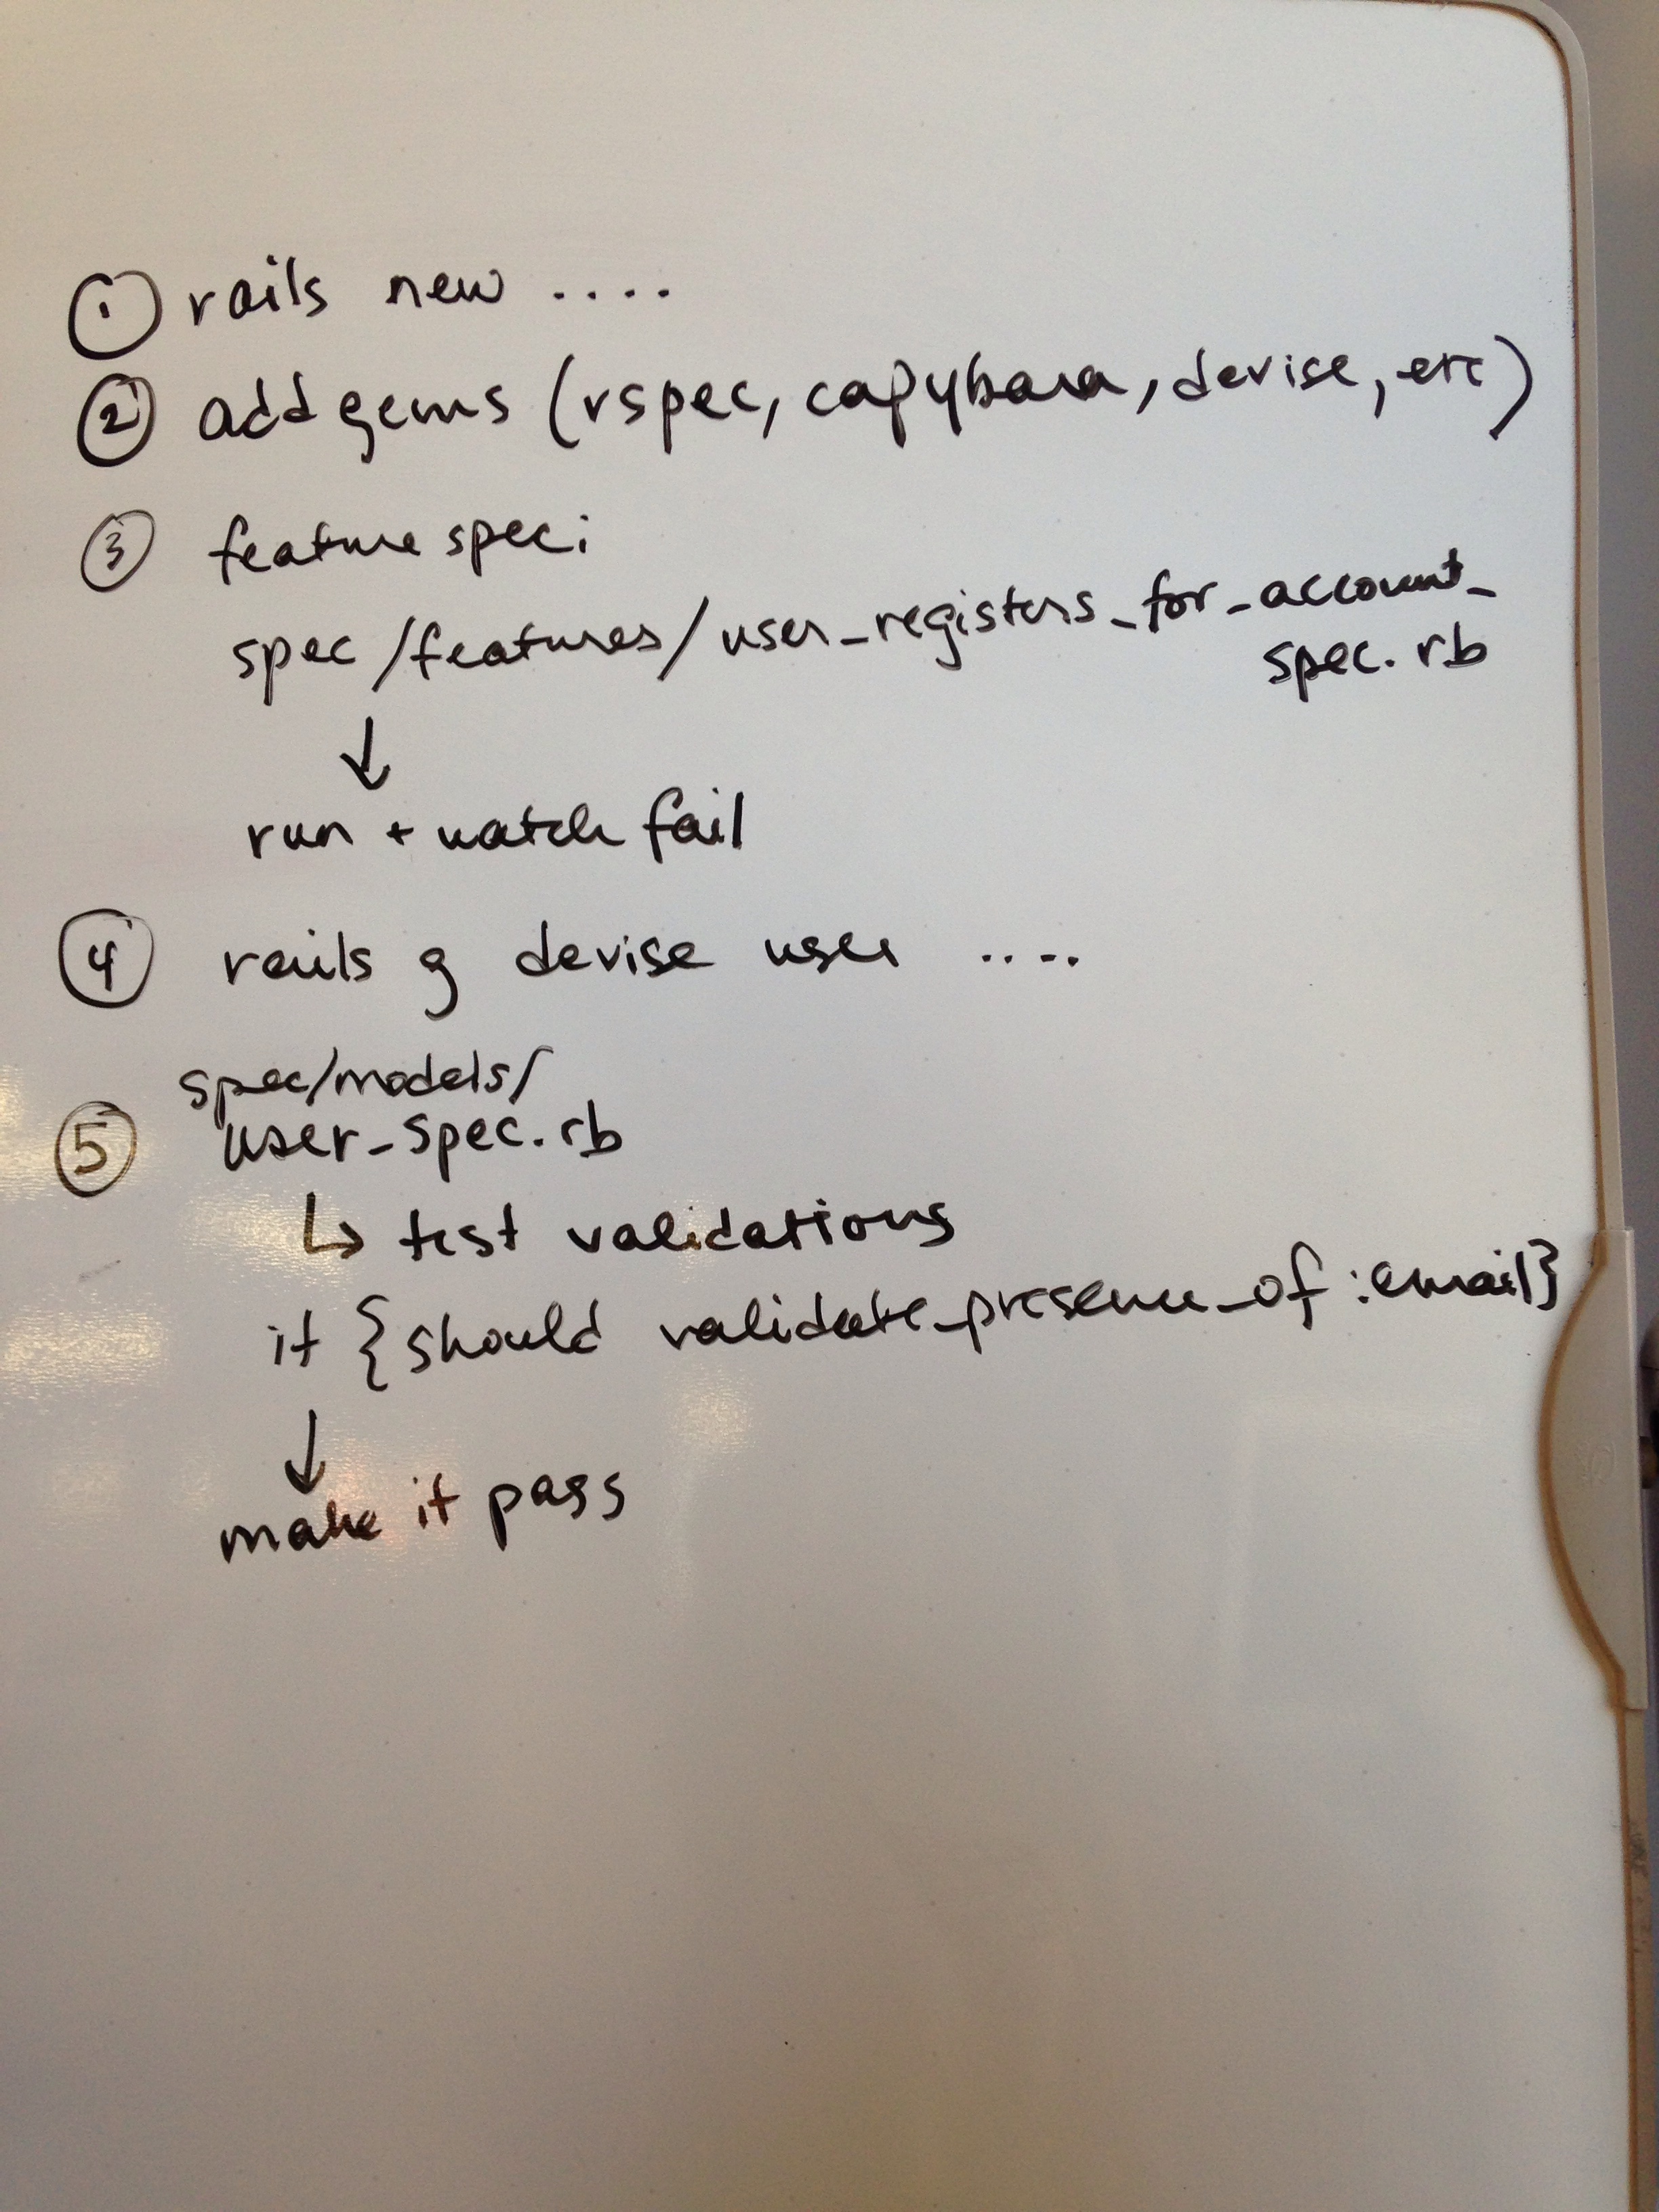 ① rails new ....
② add gems (rspec, capybara, devise, etc)
③ feature spec:
spec/features/user_registers_for_account_
spec.rb
↓
run + watch fail
④ rails g devise user ....
spec/models/
⑤ user_spec.rb
↳ test validations
it {should validate_presence_of :email}
↓
make it pass